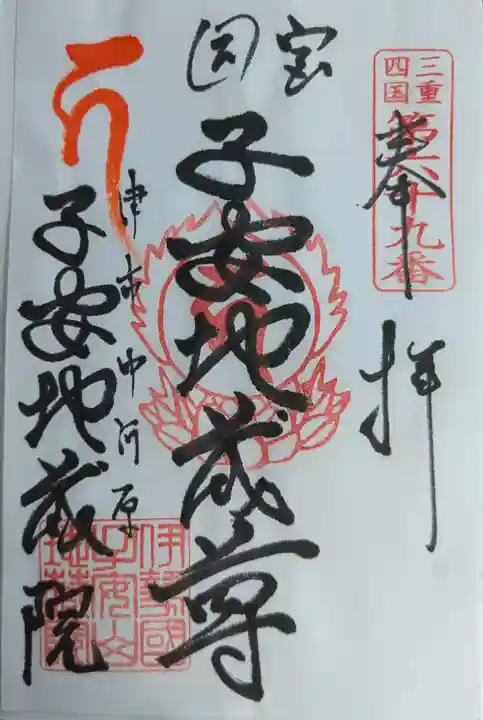 三重四国
第六十九番
奉拝
宝
国
子安地蔵尊
津市中河原
子安地蔵院
伊勢國
子安山
地蔵院